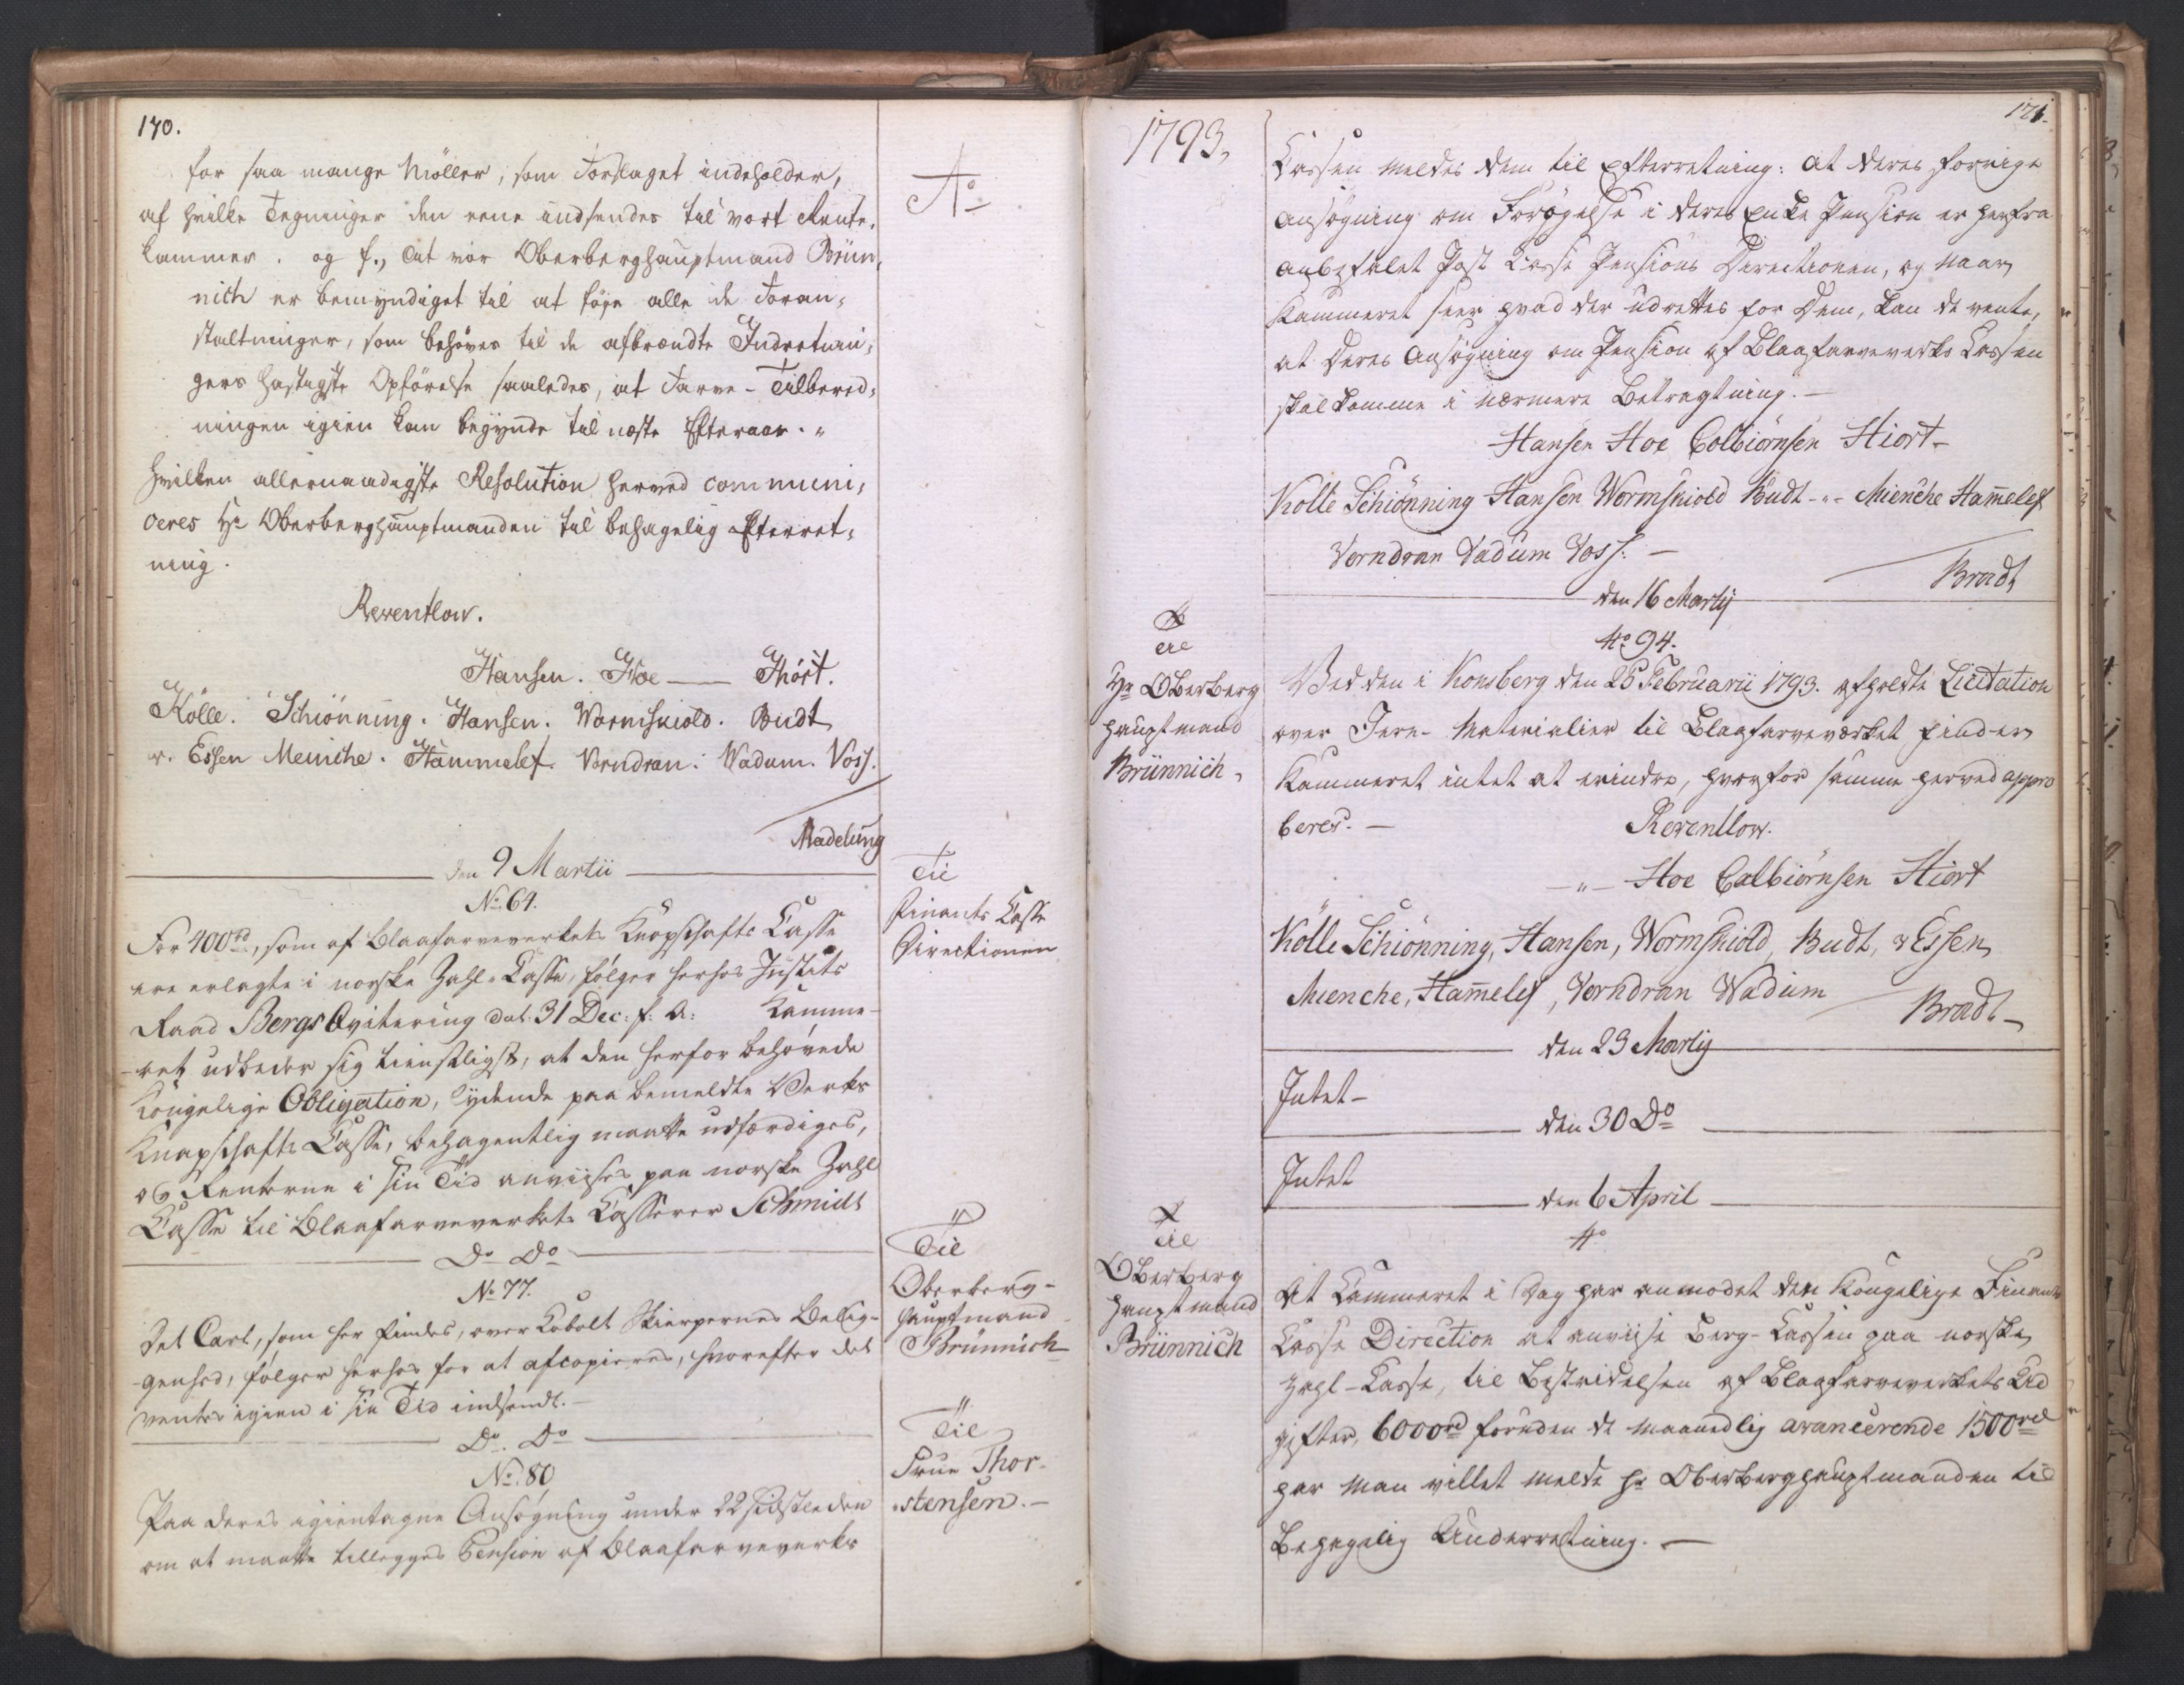 170.
for saa mange Möller, som Forslaget indeholder,
af hvilke Tegninger den eene indsendes til vort Rente-
kammer. og f., at vor Oberberghauptmand Brün-
nich er bemyndiget til at føje alle de Foran-
staltninger, som behøves til de afbrændte Indretnin-
gers hastigste Opförelse saaledes, at Farve-Tilbered-
ningen igien kan begynde til næste Efteraar."
Hvilken allernaadigste Resolution herved communi-
ceres Hr Oberberghauptmanden til behagelig Efterret-
ning.
Reventlow.
Hansen. Hoe — Hiört.
Kölle. Schiönning. Hansen. Wormskiold. Budt
v. Essen Meinche. Hammelef. Vorndran. Wadum. Voss.
Madelung
A⁰
den 9 Martii
No. 64.
Til
Finants Casse
Directionen
For 400 rd, som af Blaafarveverkets Knapschafts Casse
ere erlagte i norske Zahl-Casse, følger herhos Justits
Raad Bergs Qvitering dat. 31 Dec: f: A: Kamme-
ret udbeder sig tienstligst, at den herfor behøvede
Kongelige Obligation, lydende paa bemeldte Verks
Knapschafts Casse, behagentlig maatte udfærdiges,
og Renterne i sin Tid anviises paa norske Zahl
Casse til Blaafarveverkets Casserer Schmidt
Do Do
No 77.
Til
Oberberg-
hauptmand
Brünnich
Det Cart, som her findes, over Kobolt Skierpernes Belig-
genhed, følger herhos for at afcopieres, hvorefter det
ventes igien i sin Tid indsendt.-
Do. Do
No. 80
Til
Frue Thor-
stensen.-
Paa Deres igientagne Ansøgning under 22 sidstleden
om at maatte tillegges Pension af Blaafarveverks
1793,
171.
Cassen meldes Dem til Efterretning: at Deres forrige
Ansøgning om Forøgelse i Deres Enke Pension er herfra
anbefalet Post Casse Pensions Directionen, og naar
Kammeret seer hvad der udrettes for Dem, kan De vente,
at Deres Ansøgning om Pension af Blaafarveverks Cassen
skal komme i nærmere Betragtning.-
Hansen Hoe Colbiørnsen Hiort-
Kölle Schiönning Hansen Wormskiold Budt -"- Mienche Ham̄elef
Vorndran Vadum Voss. -
Bradt
den 16 Martij
No 94.
Til
Hr Oberberg
hauptmand
Brünnich,
Ved den i Konsberg den 25 Februarii 1793. afholdte Licitation
over Jern-Materialier til Blaafarveværket finder
Kammeret intet at erindre, hvorfor samme herved appro
beres.-
Reventlow.
-"- Hoe Colbiørnsen Hiort
Kölle Schiönning, Hansen, Wormskiold, Budt, v Essen,
Mienche, Ham̄elef, Vorndran Wadum
Bradt-
den 23 Martij
Intet-
den 30 Do
Intet
den 6 April
No
Til
Oberberg
hauptmand
Brünnich
At Kammeret i Dag har anmodet den Kongelige Finants
Casse Direction at anviise Berg-Cassen paa norske
Zahl-Casse, til Bestridelsen af Blaafarveverkets Ud
gifter, 6000 rd foruden de maanedlig avancerende 1500 rd
har man villet melde Hr Oberberghauptmanden til
behagelig Underretning.-